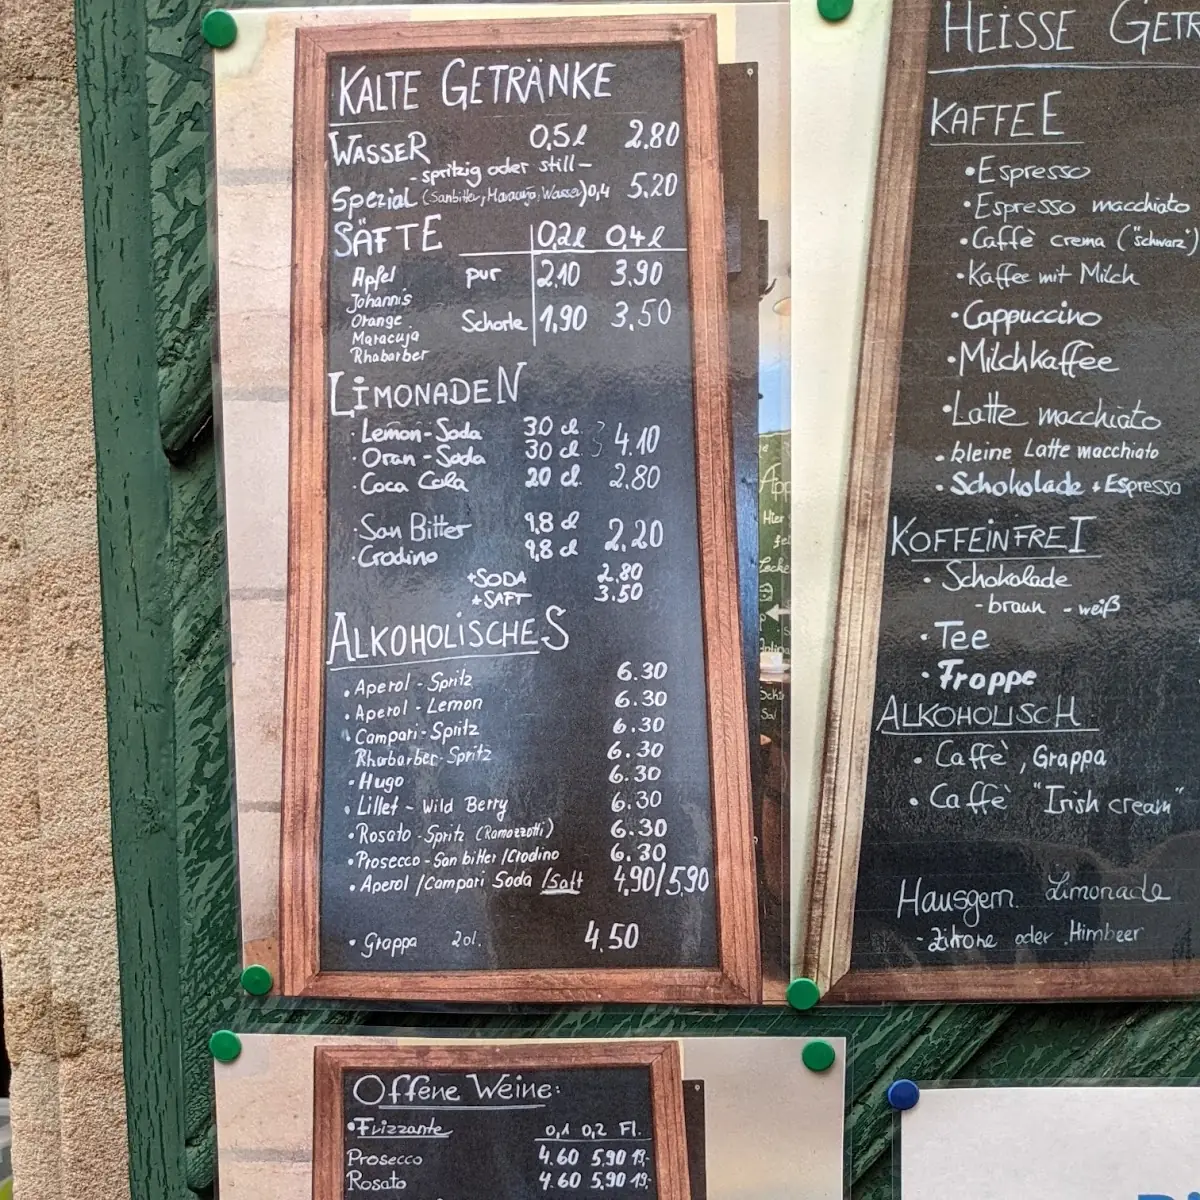 KALTE GETRÄNKE
WASSER 0,5l 2.80
- spritzig oder still -
Spezial (Sanbitter, Maracuja, Wasser) 0,4 5.20
SÄFTE 0,2l 0,4l
Apfel pur 2.10 3.90
Johannis
Orange Schorle 1,90 3.50
Maracuja
Rhabarber
LIMONADEN
· Lemon-Soda 30 cl 4.10
· Oran-Soda 30 cl
· Coca Cola 20 cl. 2.80
· San Bitter 9,8 cl 2.20
· Crodino 9,8 cl
+SODA 2.80
+SAFT 3.50
ALKOHOLISCHES
• Aperol-Spritz 6.30
• Aperol-Lemon 6.30
• Campari-Spritz 6.30
Rhabarber-Spritz 6.30
• Hugo 6.30
• Lillet - Wild Berry 6.30
• Rosato-Spritz (Ramazzotti) 6.30
• Prosecco-San bitter/Crodino 6.30
• Aperol/Campari Soda /Saft 4,90/5,90
• Grappa 2cl. 4.50
HEISSE GETR
KAFFEE
• Espresso
• Espresso macchiato
• Caffè crema ("schwarz")
• Kaffee mit Milch
• Cappuccino
• Milchkaffee
• Latte macchiato
• kleine Latte macchiato
• Schokolade + Espresso
KOFFEINFREI
• Schokolade
- braun - weiß
• Tee
• Froppe
ALKOHOLISCH
• Caffè, Grappa
• Caffè "Irish cream"
Hausgem. Limonade
- Zitrone oder Himbeer
Offene Weine:
• Frizzante 0,1 0,2 Fl.
Prosecco 4.60 5,90 19,-
Rosato 4.60 5,90 19,-